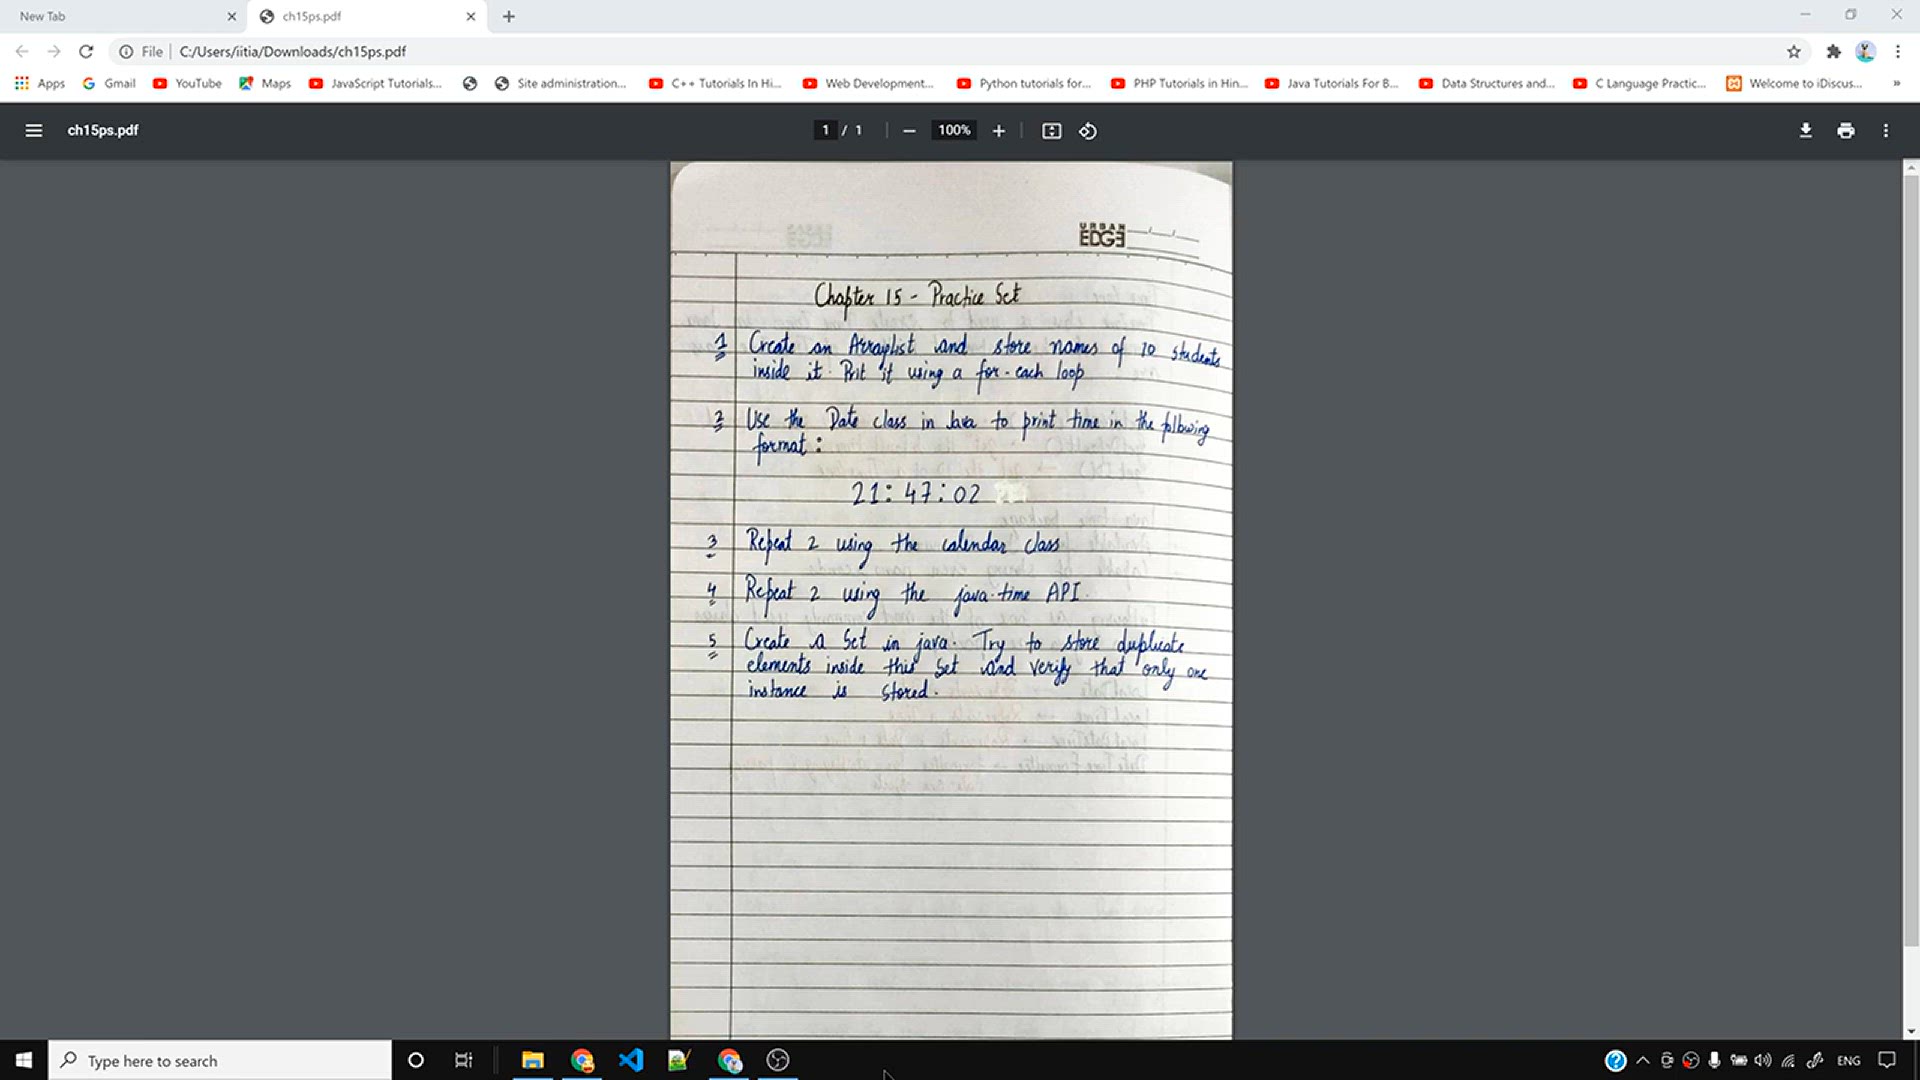 New Tab
ch15ps.pdf
File
C:/Users/iitia/Downloads/ch15ps.pdf
Apps
Gmail
YouTube
Maps
JavaScript Tutorials...
Site administration...
C++ Tutorials In Hi...
Web Development...
Python tutorials for...
PHP Tutorials in Hin...
Java Tutorials For B...
Data Structures and...
C Language Practic...
Welcome to iDiscus...
»
ch15ps.pdf
1 / 1
100%
URBAN
EDGE
Chapter 15 - Practice Set
1 Create an Arraylist and store names of 10 students
inside it. Prit it using a for-each loop
2 Use the Date class in Java to print time in the following
format :
21: 47: 02
3 Repeat 2 using the calendar class
4 Repeat 2 using the java.time API.
5 Create a Set in java. Try to store duplicate
elements inside this Set and verify that only one
instance is stored.
Type here to search
ENG